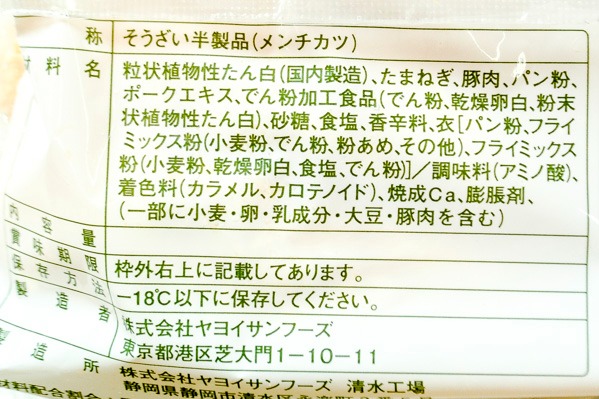 称 そうざい半製品(メンチカツ)
材料名 粒状植物性たん白(国内製造)、たまねぎ、豚肉、パン粉、
ポークエキス、でん粉加工食品(でん粉、乾燥卵白、粉末
状植物性たん白)、砂糖、食塩、香辛料、衣[パン粉、フライ
ミックス粉(小麦粉、でん粉、粉あめ、その他)、フライミックス
粉(小麦粉、乾燥卵白、食塩、でん粉)]／調味料(アミノ酸)、
着色料(カラメル、カロテノイド)、焼成Ca、膨脹剤、
(一部に小麦・卵・乳成分・大豆・豚肉を含む)
内容量
賞味期限 枠外右上に記載してあります。
保存方法 −18℃以下に保存してください。
製造者 株式会社ヤヨイサンフーズ
東京都港区芝大門1−10−11
製造所 株式会社ヤヨイサンフーズ 清水工場
静岡県静岡市清水区
材料配合割合